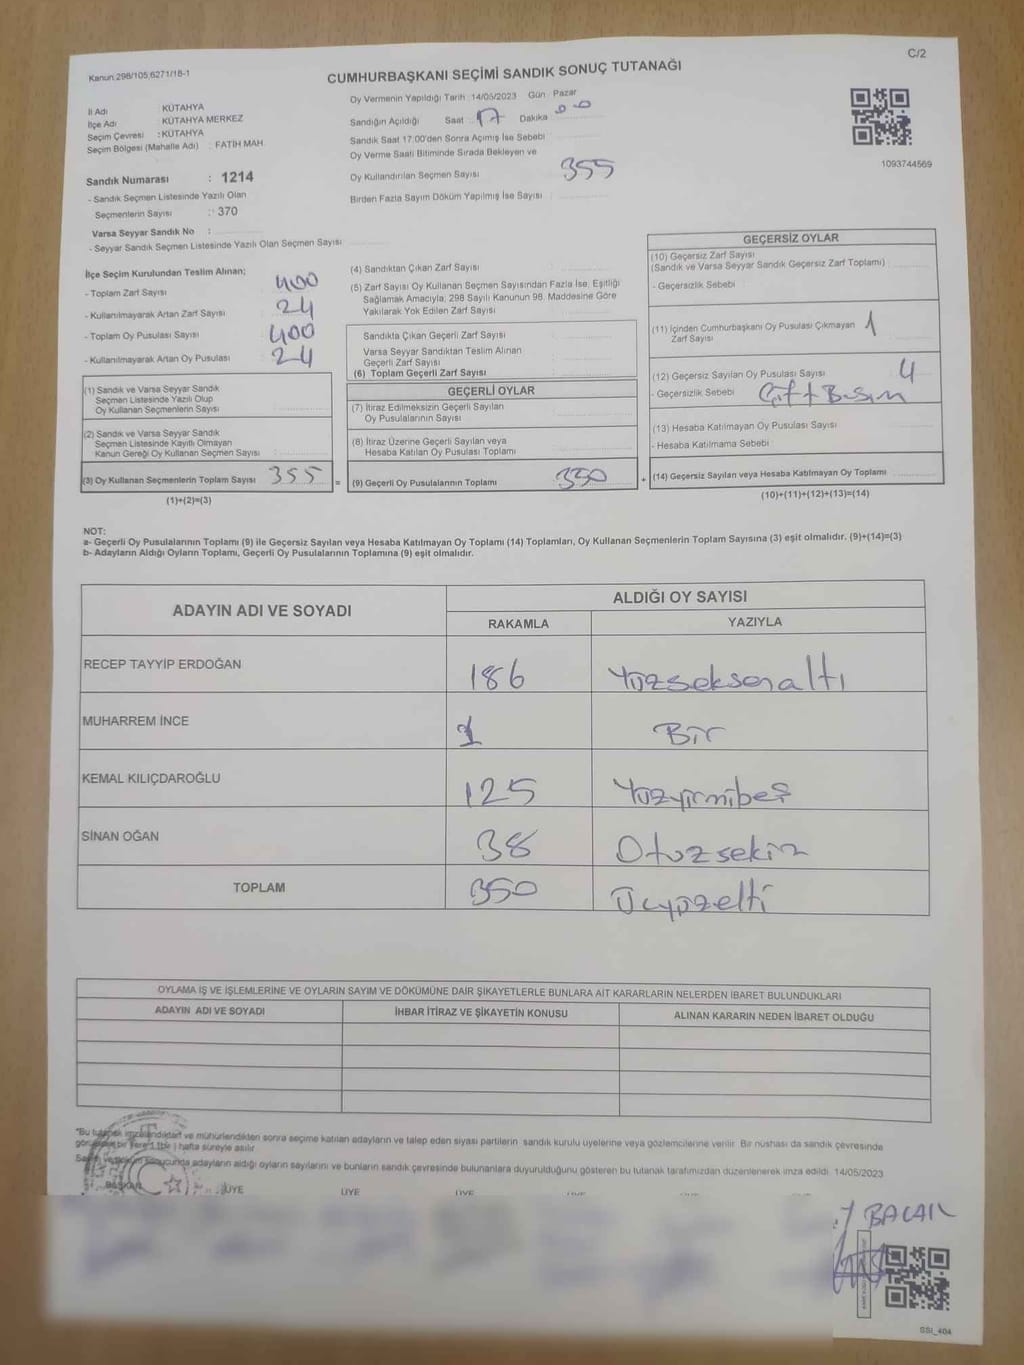 C/2
Kanun:298/105;6271/18-1
CUMHURBAŞKANI SEÇİMİ SANDIK SONUÇ TUTANAĞI
İl Adı : KÜTAHYA
İlçe Adı : KÜTAHYA MERKEZ
Seçim Çevresi : KÜTAHYA
Seçim Bölgesi (Mahalle Adı) : FATİH MAH.
Sandık Numarası : 1214
- Sandık Seçmen Listesinde Yazılı Olan
Seçmenlerin Sayısı : 370
Varsa Seyyar Sandık No :
- Seyyar Sandık Seçmen Listesinde Yazılı Olan Seçmen Sayısı
Oy Vermenin Yapıldığı Tarih : 14/05/2023 Gün : Pazar
Sandığın Açıldığı Saat : 17 Dakika : 00
Sandık Saat 17:00'den Sonra Açımış İse Sebebi
Oy Verme Saati Bitiminde Sırada Bekleyen ve
Oy Kullandırılan Seçmen Sayısı 355
Birden Fazla Sayım Döküm Yapılmış İse Sayısı :
1093744569
İlçe Seçim Kurulundan Teslim Alınan;
- Toplam Zarf Sayısı 400
- Kullanılmayarak Artan Zarf Sayısı 24
- Toplam Oy Pusulası Sayısı 400
- Kullanılmayarak Artan Oy Pusulası 24
(1) Sandık ve Varsa Seyyar Sandık
Seçmen Listesinde Yazılı Olup
Oy Kullanan Seçmenlerin Sayısı
(2) Sandık ve Varsa Seyyar Sandık
Seçmen Listesinde Kayıtlı Olmayan
Kanun Gereği Oy Kullanan Seçmen Sayısı :
(3) Oy Kullanan Seçmenlerin Toplam Sayısı 355 =
(1)+(2)=(3)
(4) Sandıktan Çıkan Zarf Sayısı
(5) Zarf Sayısı Oy Kullanan Seçmen Sayısından Fazla İse, Eşitliği
Sağlamak Amacıyla; 298 Sayılı Kanunun 98. Maddesine Göre
Yakılarak Yok Edilen Zarf Sayısı
Sandıkta Çıkan Geçerli Zarf Sayısı
Varsa Seyyar Sandıktan Teslim Alınan
Geçerli Zarf Sayısı
(6) Toplam Geçerli Zarf Sayısı
GEÇERLİ OYLAR
(7) İtiraz Edilmeksizin Geçerli Sayılan
Oy Pusulalarının Sayısı
(8) İtiraz Üzerine Geçerli Sayılan veya
Hesaba Katılan Oy Pusulası Toplamı
(9) Geçerli Oy Pusulalarının Toplamı 350 +
GEÇERSİZ OYLAR
(10) Geçersiz Zarf Sayısı
(Sandık ve Varsa Seyyar Sandık Geçersiz Zarf Toplamı)
- Geçersizlik Sebebi :
(11) İçinden Cumhurbaşkanı Oy Pusulası Çıkmayan 1
Zarf Sayısı
(12) Geçersiz Sayılan Oy Pusulası Sayısı 4
- Geçersizlik Sebebi : Çift Basım
(13) Hesaba Katılmayan Oy Pusulası Sayısı
- Hesaba Katılmama Sebebi
(14) Geçersiz Sayılan veya Hesaba Katılmayan Oy Toplamı
(10)+(11)+(12)+(13)=(14)
NOT:
a- Geçerli Oy Pusulalarının Toplamı (9) ile Geçersiz Sayılan veya Hesaba Katılmayan Oy Toplamı (14) Toplamları, Oy Kullanan Seçmenlerin Toplam Sayısına (3) eşit olmalıdır. (9)+(14)=(3)
b- Adayların Aldığı Oyların Toplamı, Geçerli Oy Pusulalarının Toplamına (9) eşit olmalıdır.
ADAYIN ADI VE SOYADI
ALDIĞI OY SAYISI
RAKAMLA YAZIYLA
RECEP TAYYİP ERDOĞAN 186 Yüzseksenaltı
MUHARREM İNCE 1 Bir
KEMAL KILIÇDAROĞLU 125 Yüzyirmibeş
SİNAN OĞAN 38 Otuzsekiz
TOPLAM 350 Üçyüzelli
OYLAMA İŞ VE İŞLEMLERİNE VE OYLARIN SAYIM VE DÖKÜMÜNE DAİR ŞİKAYETLERLE BUNLARA AİT KARARLARIN NELERDEN İBARET BULUNDUKLARI
ADAYIN ADI VE SOYADI İHBAR İTİRAZ VE ŞİKAYETİN KONUSU ALINAN KARARIN NEDEN İBARET OLDUĞU
*Bu tutanak imzalandıktan ve mühürlendikten sonra seçime katılan adayların ve talep eden siyasi partilerin sandık kurulu üyelerine veya gözlemcilerine verilir. Bir nüshası da sandık çevresinde
görülebilen bir yere 1 (bir) hafta süreyle asılır.
Sayım ve döküm sonucunda adayların aldığı oyların sayılarını ve bunların sandık çevresinde bulunanlara duyurulduğunu gösteren bu tutanak tarafımızdan düzenlenerek imza edildi. 14/05/2023
BAŞKAN ÜYE ÜYE ÜYE
SSI_404